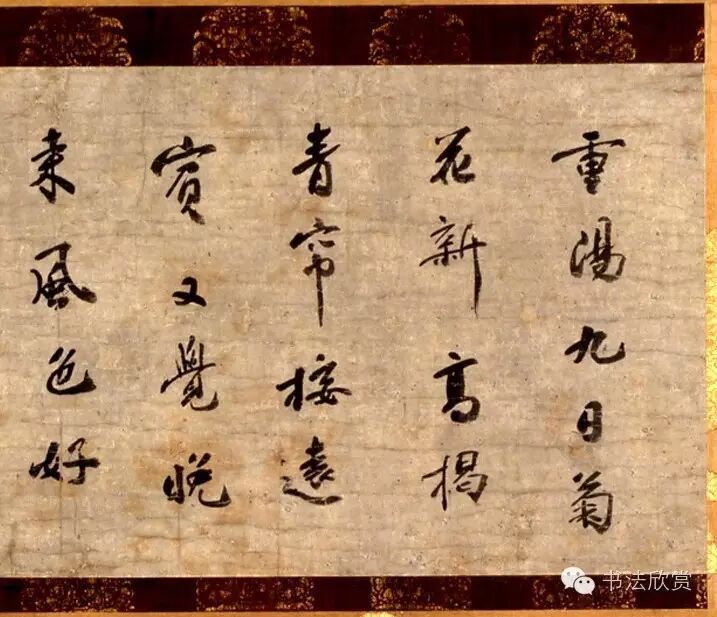 重陽九日菊
花新高揭
青帘接遠
賓又覺晚
来風色好
书法欣赏